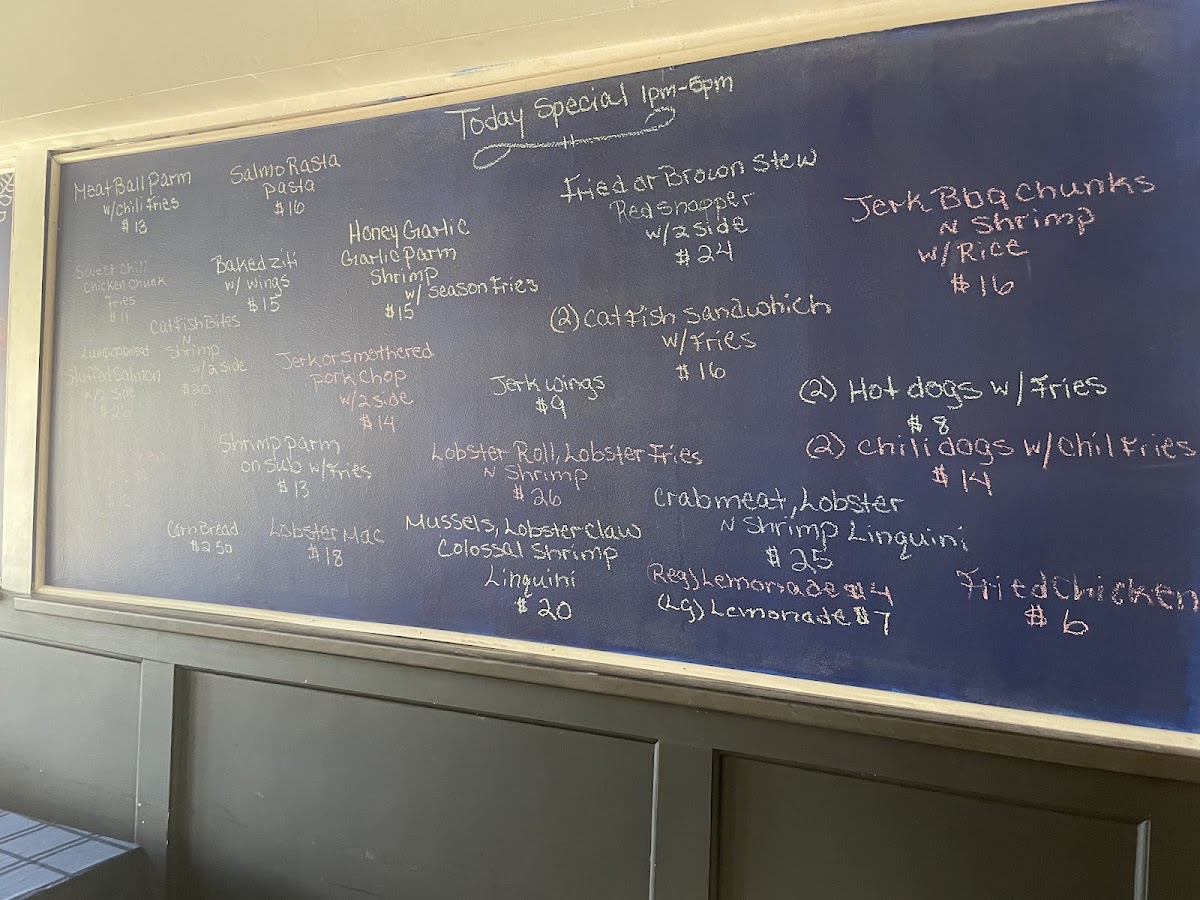 Today Special 1pm-6pm
Meat Ball Parm
w/Chili Fries
$13
Salmo Rasta
Pasta
$16
Honey Garlic
Garlic Parm
Shrimp
w/ Season Fries
$15
Fried or Brown Stew
Red Snapper
w/2 side
$24
Jerk Bbq Chunks
N Shrimp
w/Rice
$16
Sweet Chili
Chicken Chunk
Fries
$11
Baked ziti
w/ Wings
$15
(2) Catfish sandwhich
w/Fries
$16
Catfish Bites
N
Shrimp
w/2 side
$20
Stuffed Salmon
w/2 side
$26
Jerk or Smothered
Pork Chop
w/2 side
$14
Jerk Wings
$9
(2) Hot dogs w/ Fries
$8
(2) Chili dogs w/Chil Fries
$14
Shrimp Parm
on sub w/Fries
$13
Lobster Roll, Lobster Fries
N Shrimp
$26
Crabmeat, Lobster
N Shrimp Linquini
$25
Corn Bread
$2.50
Lobster Mac
$18
Mussels, Lobster Claw
Colossal Shrimp
Linquini
$20
(Reg) Lemonade $4
(Lg) Lemonade $7
Fried Chicken
$6